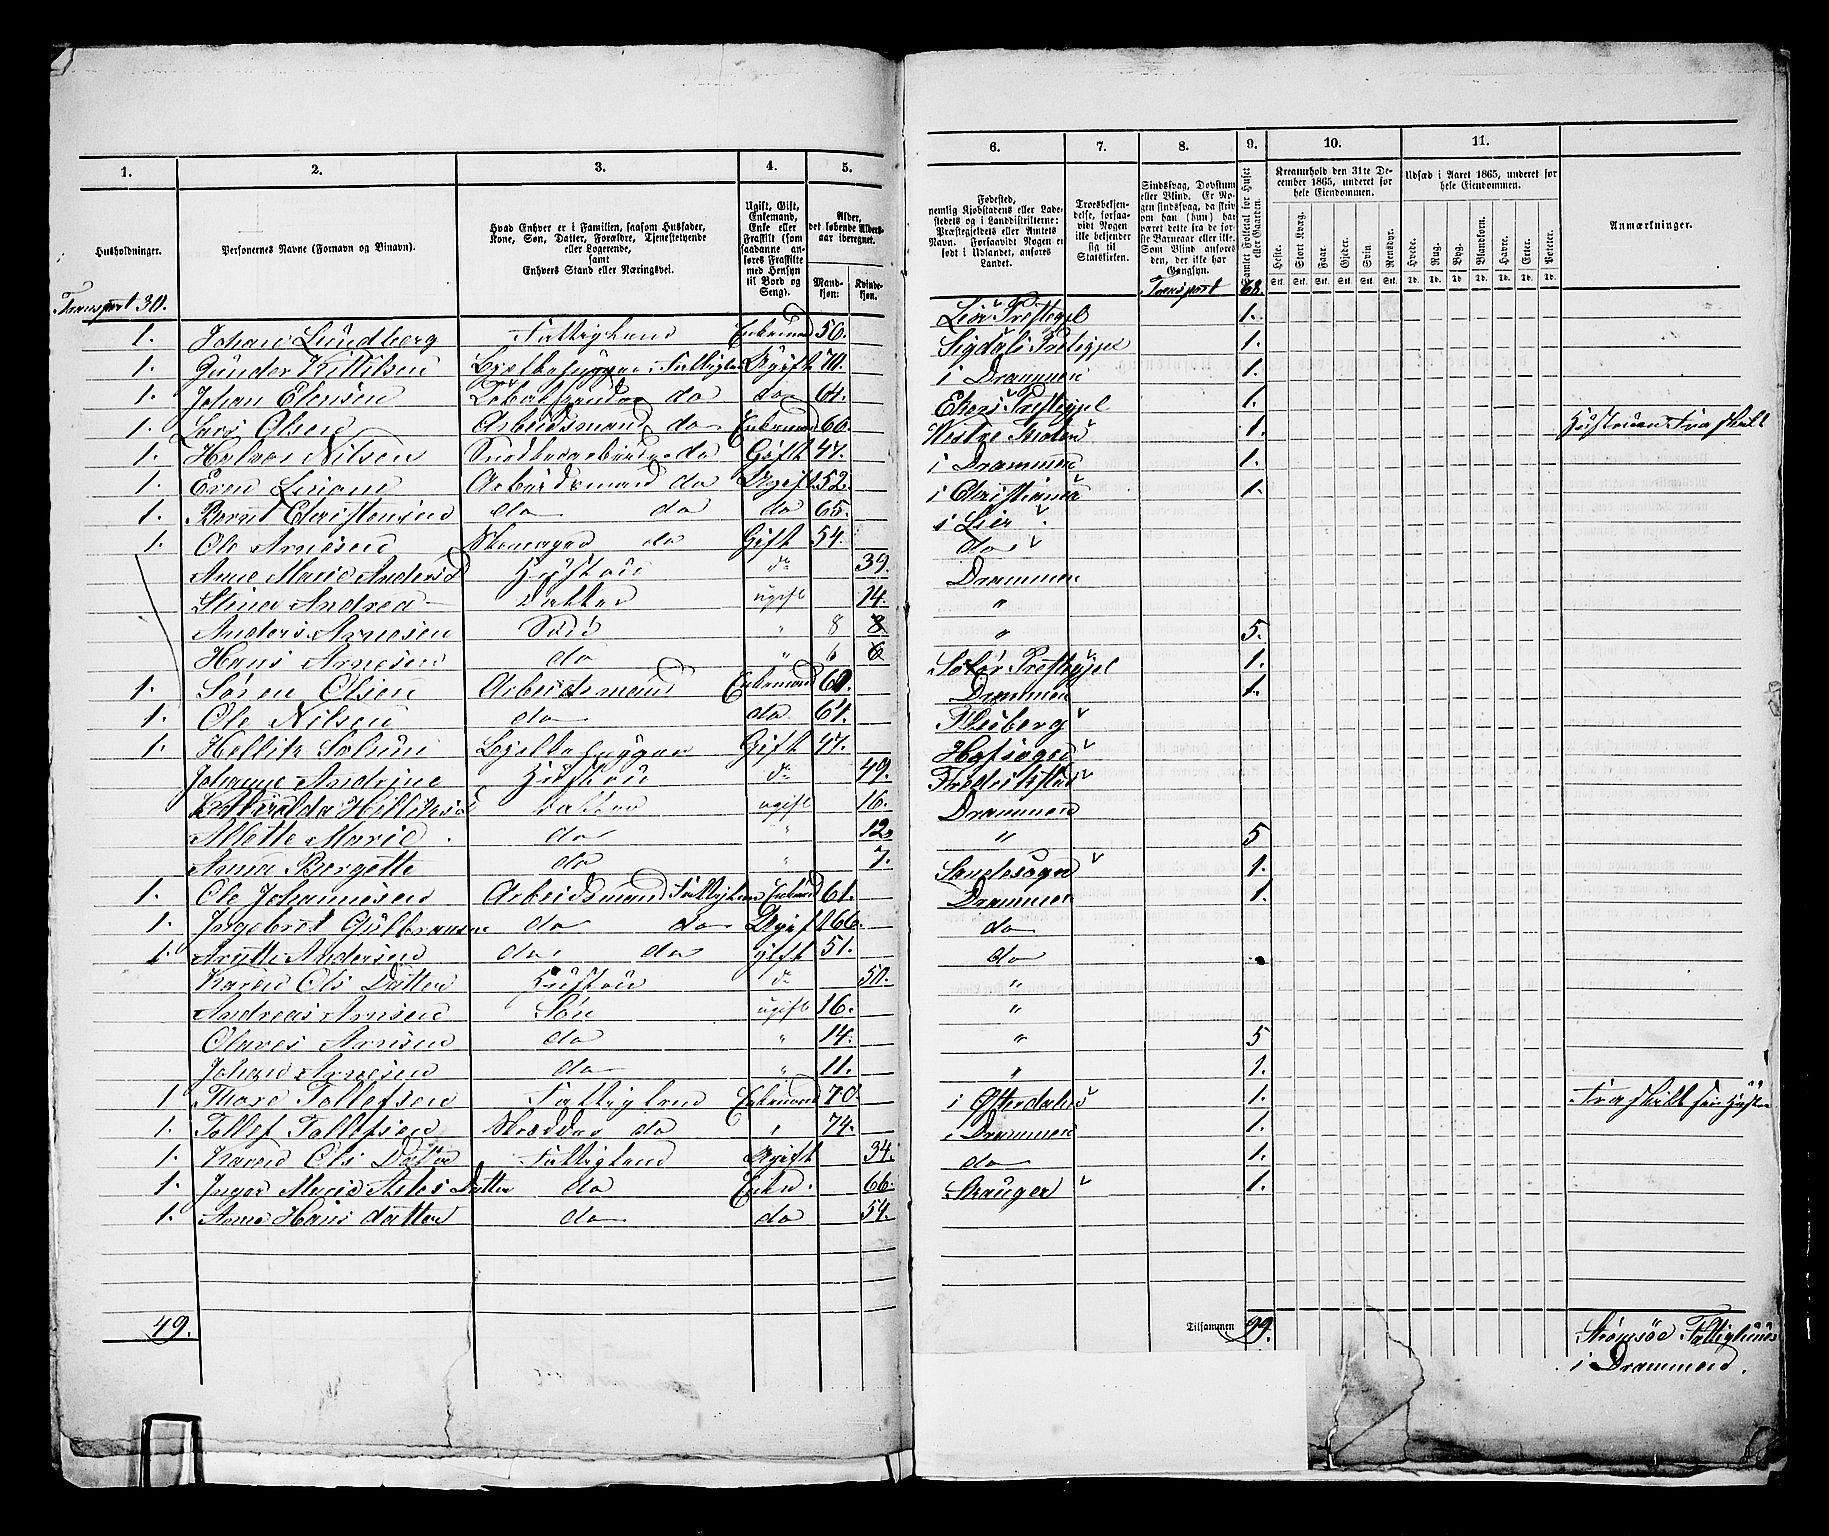 1.
2.
3.
4.
5.
Husholdninger.
Personernes Navne (Fornavn og Binavn).
Hvad Enhver er i Familien, saasom Husfader,
Kone, Søn, Datter, Forældre, Tjenestetyende
eller Logerende,
samt
Enhvers Stand eller Næringsvei.
Ugift, Gift,
Enkemand,
Enke eller
Fraskilt (som
saadanne an-
føres Fraskilte
med Hensyn
til Bord og
Seng).
Alder,
det løbende Alders-
aar iberegnet.
Mand-
kjøn.
Kvinde-
kjøn.
Transport 30.
1. Johan Lundberg Fattiglem Enkemand 50.
1. Gunder Kittilsen i Fattiglem Ugift 70.
1. Johan do do 64.
1. Lars Olsen Arbeidsmand do Enkemand 60.
1. Halvor Nilsen do Gift 47.
1. Even Arbeidsmand do Ugift 52.
1. Bernt Christensen do do do 65.
1. Ole Arnesen Skomager do Gift 54.
Anne Marie Andersd Hustru do 39.
Stina Andrea Datter ugift 14.
Anders Arnesen Søn " 8 8
Hans Arnesen do " 6 6
1. Søren Olsen Arbeidsmand Enkemand 60.
1. Ole Nilsen do do 64.
1. Hellik Gift 47.
Johanne Andrine Hustru do 49.
Helliksd Datter ugift 16.
Mette Marie do " 12.
Anna Bergette do " 7.
1. Ole Johannesen Arbeidsmand Fattiglem Enkemd 61.
1. Ingebret Gulbransen do do Ugift 66.
1. Andersen do do gift 51.
Karen Ols Datter Hustru do 50.
Andreas Arnesen Søn ugift 16.
Olaves Arnesen do " 14.
Johan Arnesen do " 11.
1 Thore Tollefsen Fattiglem Enkemand 70.
1. Tollef Tollefsen Skrædder do 74.
1. Karen Ols Datter Fattiglem Ugift 34.
1. Inger Marie Datter do Enke. 66.
1. Anne Hans datter do do 54.
49.
6.
7.
8.
9.
10.
11.
Fødested,
nemlig Kjøbstadens eller Lade-
stedets og i Landdistrikterne:
Præstegjeldets eller Amtets
Navn. Forsaavidt Nogen er
født i Udlandet, anføres
Landet.
Troesbekjen-
delse, forsaa-
vidt Nogen
ikke bekjender
sig til
Statskirken.
Sindssvag, Døvstum
eller Blind. Er No-
gen sindssvag, da skriv
om han (hun) har
været dette fra de før-
ste Barneaar eller ikke.
Som Blind anføres
den, der ikke har
Gangsyn.
Samlet Folketal for Huset
eller Gaarden.
Kreaturhold den 31te De-
cember 1865, underet for
hele Eiendommen.
Heste.
Stort Kvæg.
Faar.
Gjeder.
Svin
Rensdyr.
Stk.
Stk.
Stk.
Stk.
Stk.
Stk.
Udsæd i Aaret 1865, underet for
hele Eiendommen.
Hvede.
Rug.
Byg.
Blandkorn.
Havre.
Erter.
Poteter.
Td.
Td.
Td.
Td.
Td.
Td.
Td.
Anmærkninger.
Transport 68.
Lier Prestegjel 1.
Sigdals Prestegjel 1.
i Drammen 1.
Ekers Prestegjel 1.
Vestre 1. Hustruen Fraskilt
i Drammen 1.
i Christiania 1.
i Lier
do
Drammen
"
" 5.
Solør Prestegjel 1.
Drammen 1.
Flesberg
Fredrikstad
Drammen
" 5
Sandesogn 1.
Drammen 1.
do
do
"
"
" 5
" 1.
i Østerdalen 1. Fraskilt
i Drammen 1.
do 1.
1.
Tilsammen 99.
Strømsøe Fattighuus
i Drammen.